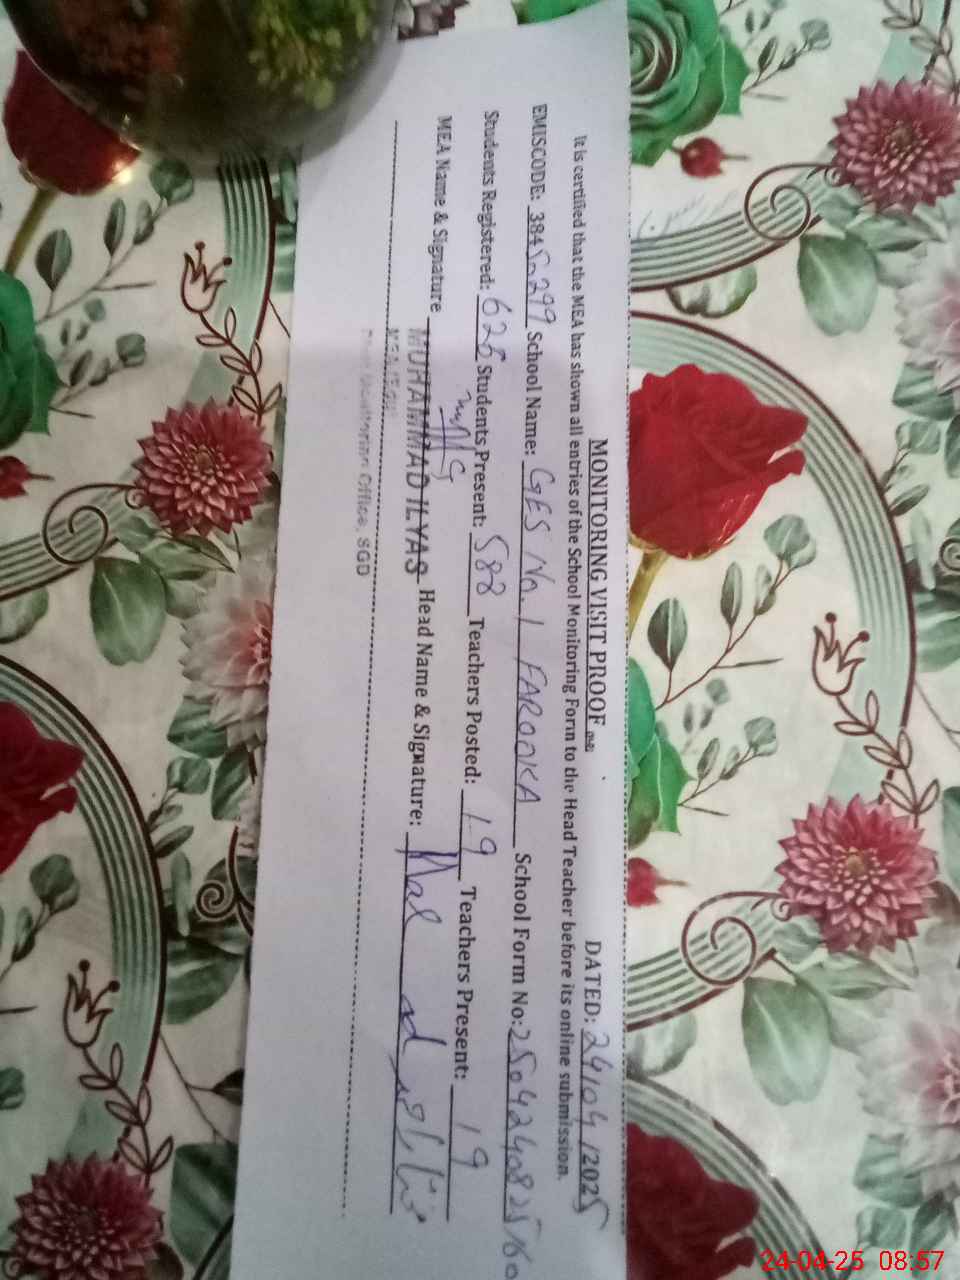 MONITORING VISIT PROOF
DATED: 24/04/2025
It is certified that the MEA has shown all entries of the School Monitoring Form to the Head Teacher before its online submission.
EMISCODE: 38450299 School Name: GES No. 1 FAROOKA School Form No: 250424082560
Students Registered: 625 Students Present: 588 Teachers Posted: 19 Teachers Present: 19
MEA Name & Signature MUHAMMAD ILYAS Head Name & Signature:
Monitoring Office, SGD
24-04-25 08:57